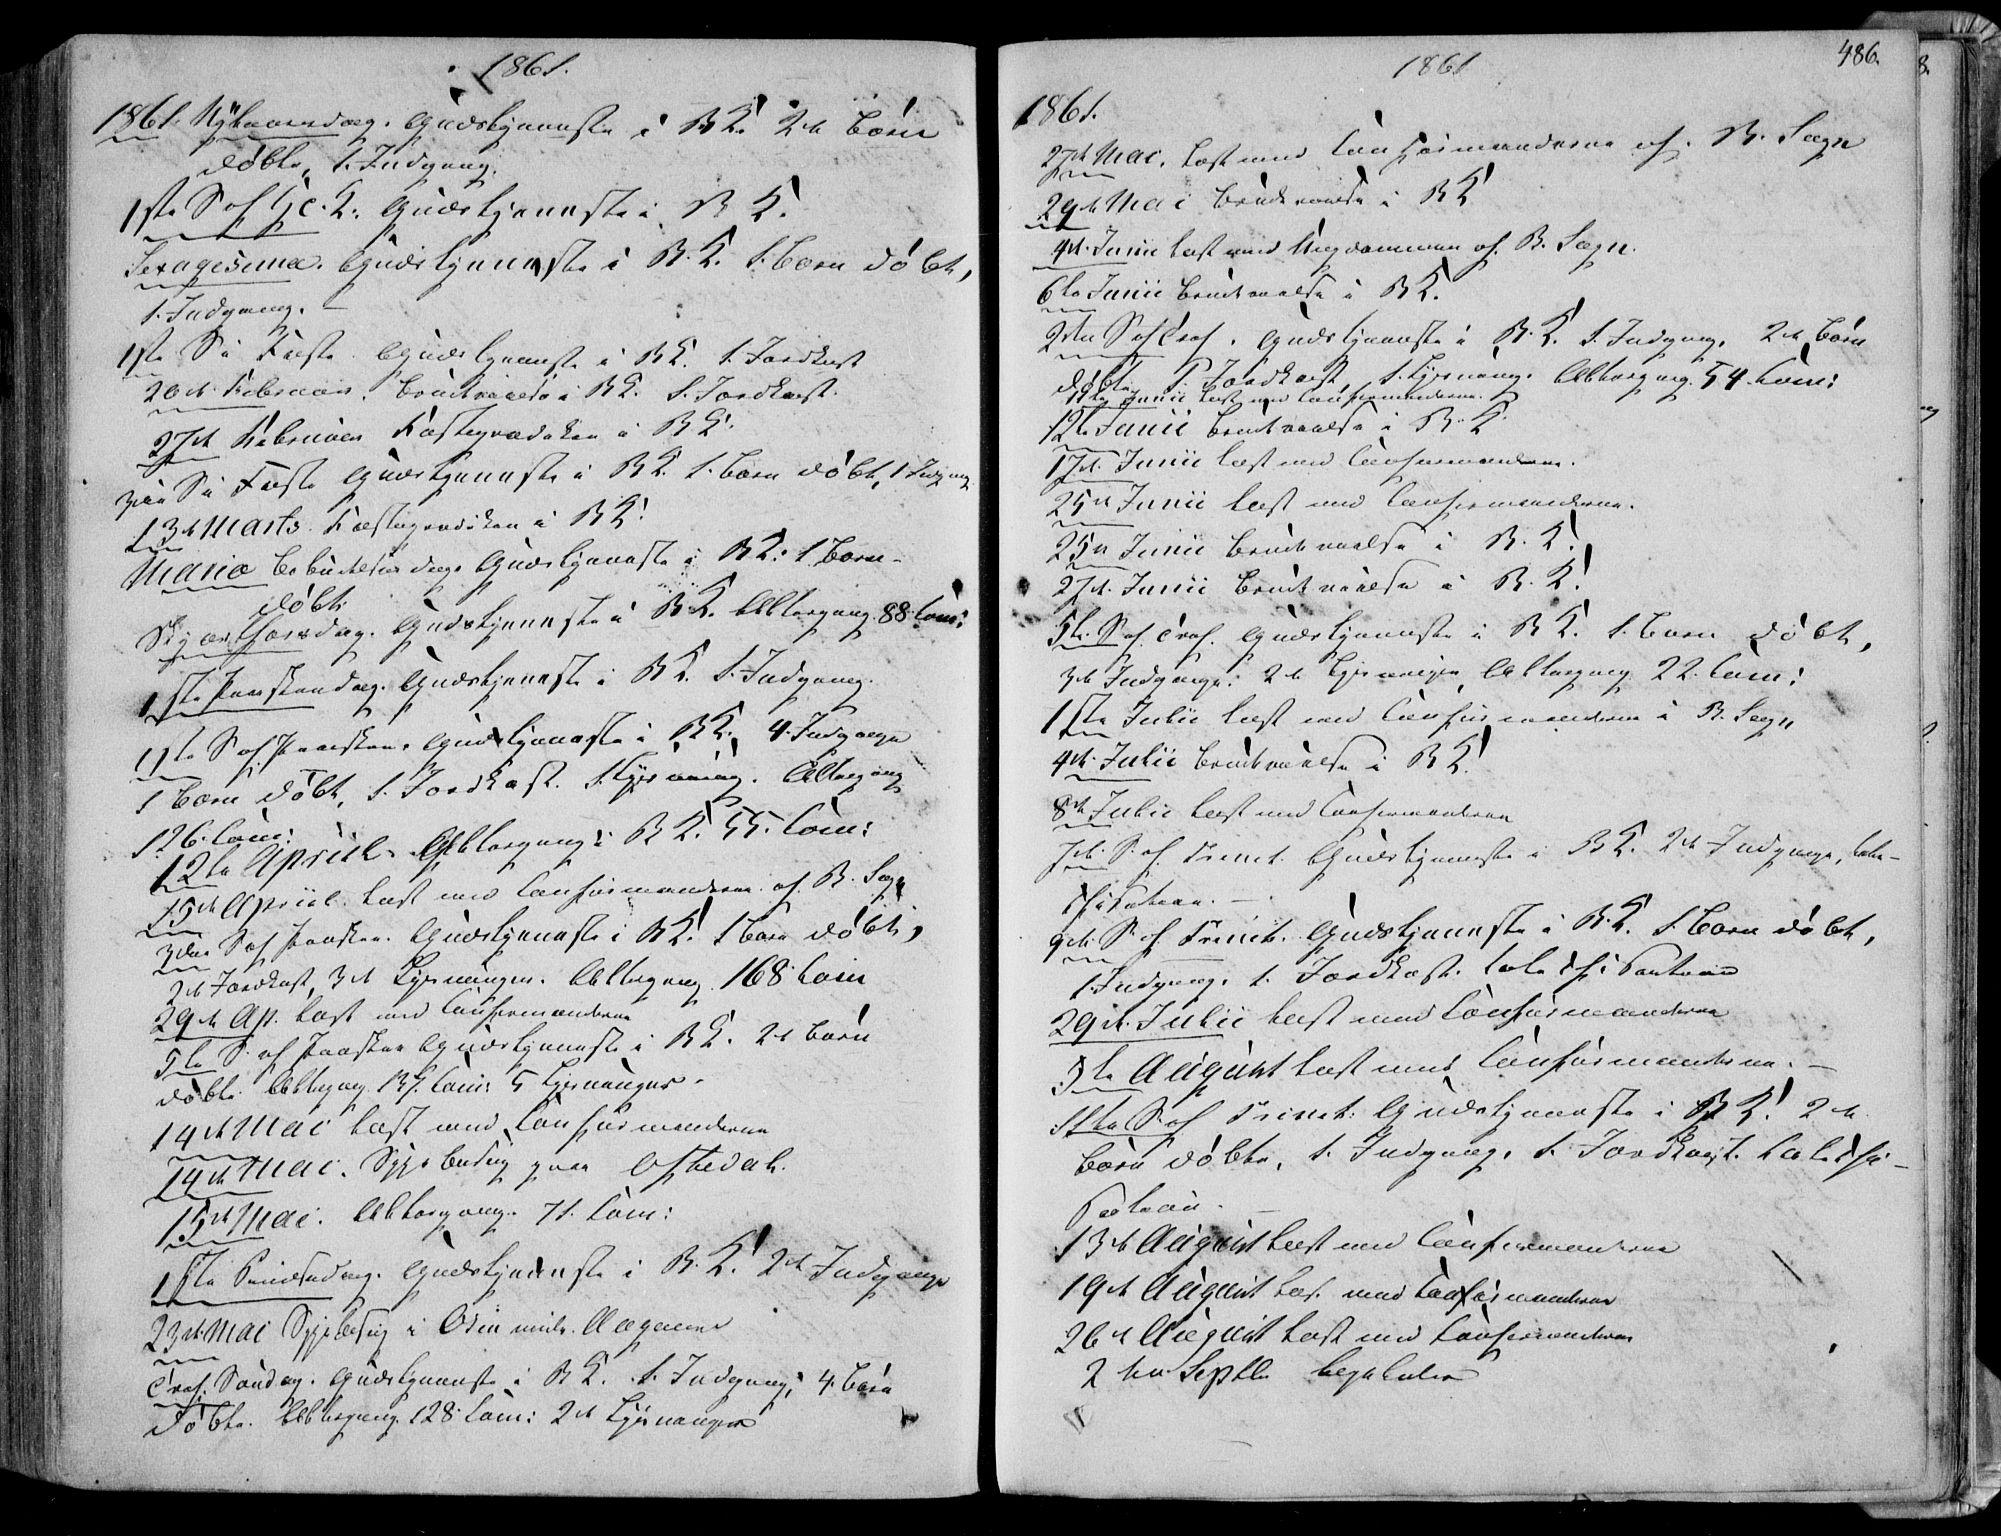 1861.
1861. Nytaarsdag. Gudstjeneste i B K. 2de Børn
døbte, 1. Indgang.
1ste S. ef. H. 3. K. Gudstjeneste i B K.
Sexagesima. Gudstjeneste i B. K. 1. Barn døbt,
1. Indgang. —
1ste S. i Faste. Gudstjeneste i B K. 1. Jordkast
20de Februar. Brudevielse i B K. 1. Jordkast.
27de Februar Fasteprædiken i B K.
3die S. i Faste Gudstjeneste i B K. 1. Barn døbt, 1 Indgang
13de Marts. Fasteprædiken i B K.
Mariæ Bebudelses dag. Gudstjeneste i B K. 1. Barn
døbt.
Skjærthorsdag. Gudstjeneste i B K. Altergang 88. Com:
1ste Paaskedag. Gudstjeneste i B K. 1. Indgang.
1ste S. ef. Paasken. Gudstjeneste i B K. 4. Indgange
1 Barn døbt, 1. Jordkast. 1. Trolovning. Altergang
126. Com:
12te Apriil. Altergang i B K. 55. Com:
15de Apriil. Læst med Confirmanderne af B. Sogn
3die S. ef. Paasken. Gudstjeneste i B K. 1 Barn døbt,
2de Jordkast, 3de . Altergang 168. Com:
29de Ap. Læst med Confirmanderne
5te S. ef. Paasken Gudstjeneste i B K. 2de Børn
døbte. Altergang Com: 5
14de Mai Læst med Confirmanderne
14de Mai. Sygebesøg paa
15de Mai. Altergang. 71. Com:
1ste Pintsedag. Gudstjeneste i B. K. 2de Indgange
23de Mai Sygebesøg i
Tref. Søndag. Gudstjeneste i B K. 1. Indgang, 4. Børn
døbte. Altergang. 128. Com: 2de
1861
486.
1861.
27de Mai. Læst med Confirmanderne af B. Sogn
29de Mai Brudevielse i B K
4de Junii Læst med Ungdommen af B. Sogn.
6te Junii Brudevielse i B K.
2den S. ef. Tref. Gudstjeneste i B. K. 1. Indgang. 2de Børn
døbte, 1. Jordkast, 1. Altergang. 54. Com:
Junii Læst med Confirmanderne.
12te Junii Brudevielse i B. K.
17de Junii Læst med Confirmanderne.
25de Junii Læst med Confirmanderne.
25de Junii Brudevielse i B. K.
27de Junii Brudevielse i B. K.
5te S. ef. Tref. Gudstjeneste i B K. 1. Barn døbt,
3de Indgange. 2de Altergang 22. Com:
1ste Julii Læst med Confirmanderne i B. Sogn
4de Julii Brudevielse i B K.
8de Julii Læst med Confirmanderne
7de S. ef. Trinit. Gudstjeneste i B K. 2de Indgange, Cate-
chisation. —
9de S. ef. Trinit. Gudstjeneste i B. K. 1. Barn døbt,
1. Indgang. 1. Jordkast. Catechisation
29de Julii Læst med Confirmanderne
5te August Læst med Confirmanderne. —
11te S. ef. Trinit. Gudstjeneste i B K. 2de
Børn døbte, 1. Indgang, 1. Jordkast. Catechi-
sation. —
13de August Læst med Confirmanderne
19de August Læst med Confirmanderne
26de August Læst med Confirmanderne
2den Septbr.